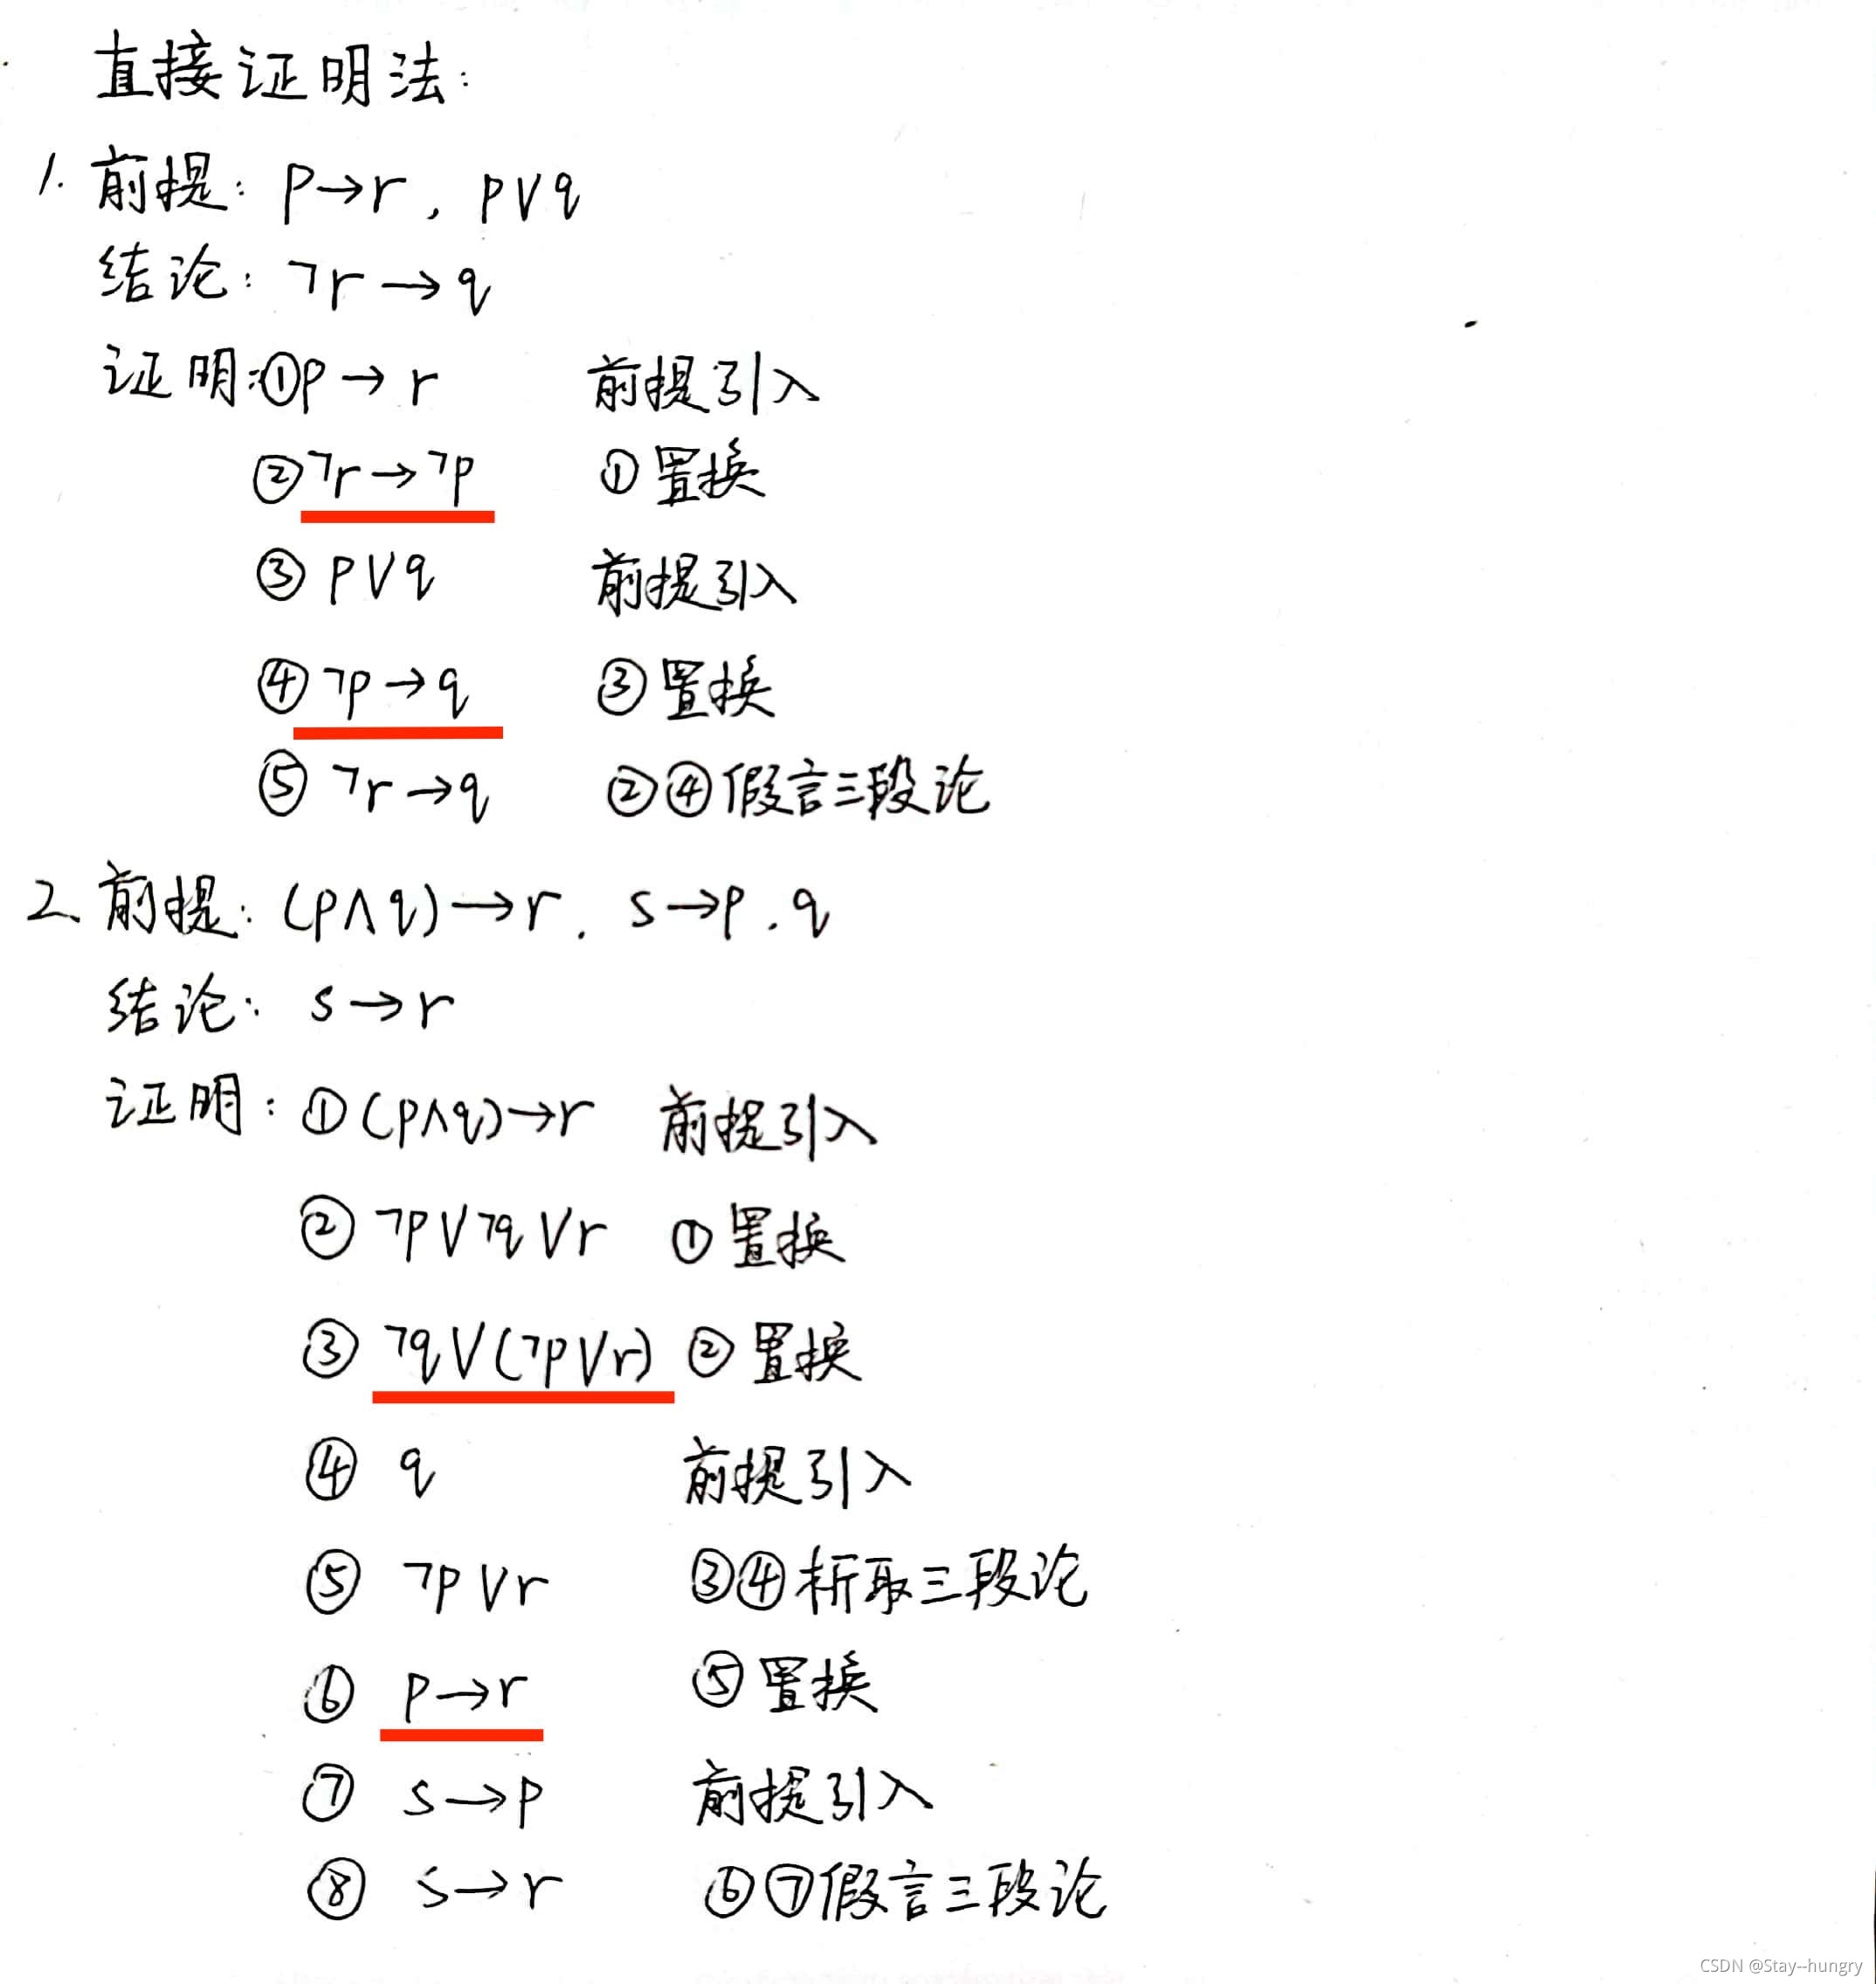 直接证明法:
1. 前提: p→r, p∨q
结论: ¬r→q
证明:①p→r 前提引入
②¬r→¬p ①置换
③ p∨q 前提引入
④¬p→q ③置换
⑤ ¬r→q ②④假言三段论
2. 前提: (p∧q)→r. s→p. q
结论: s→r
证明: ①(p∧q)→r 前提引入
② ¬p∨¬q∨r ①置换
③ ¬q∨(¬p∨r) ②置换
④ q 前提引入
⑤ ¬p∨r ③④析取三段论
⑥ p→r ⑤置换
⑦ s→p 前提引入
⑧ s→r ⑥⑦假言三段论
CSDN @Stay--hungry